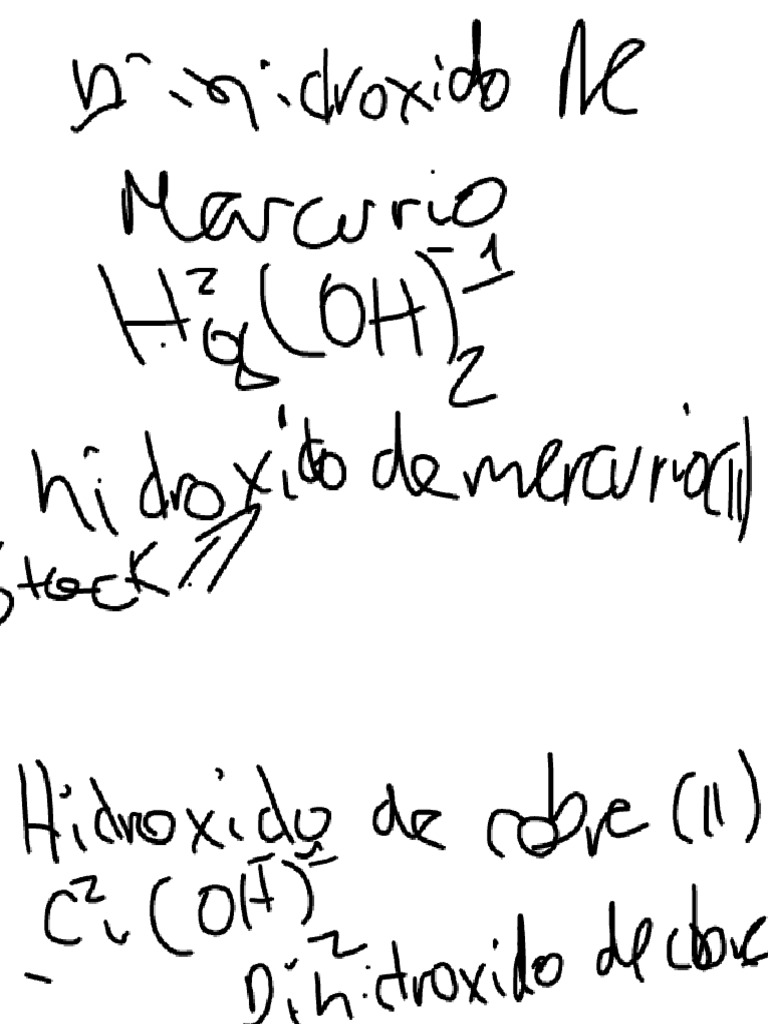 Dihidroxido de
Marcurio
Hg²(OH)₂⁻¹
hidroxido de mercurio(II)
Stock
Hidroxido de cobre (II)
Cu²(OH)₂⁻
Dihidroxido de cbre